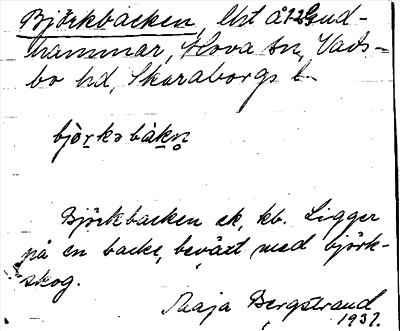 Björkbacken, lht å 1 2/3 Gud-
hammar, Hova sn, Vads-
bo hd, Skaraborgs l.
björkəbàkn̥
Björkbacken ek. kb. Ligger
på en backe, beväxt med björk-
skog.
Maja Bergstrand
1937.